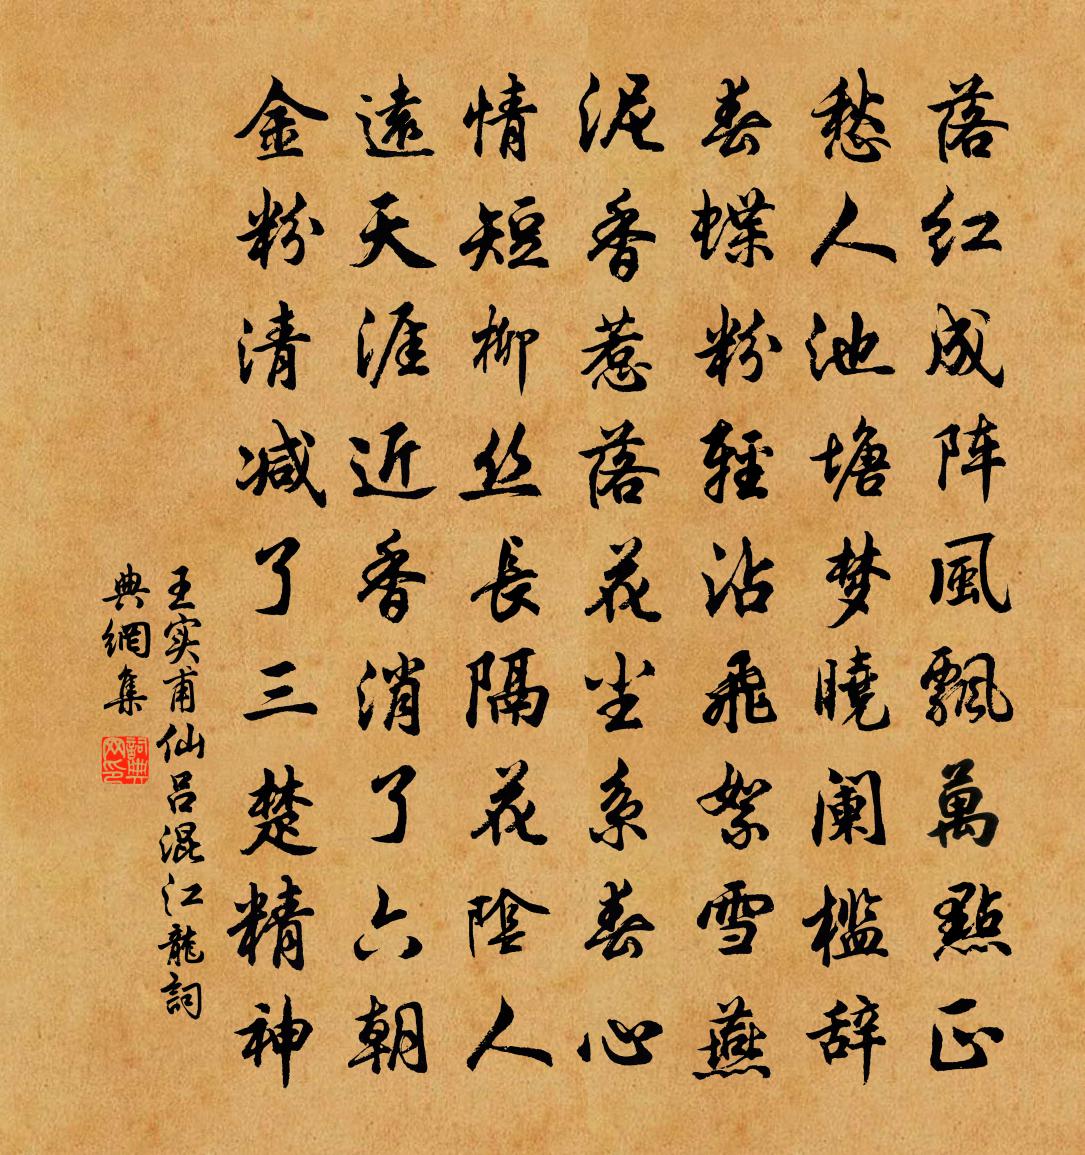 落红成阵風飄萬點正
愁人池塘梦曉阑槛辞
春蝶粉輕沾飛絮雪燕
泥香惹落花尘系春心
情短柳丝長隔花陰人
遠天涯近香消了六朝
金粉清减了三楚精神
王实甫仙吕混江龍詞
典網集
詞典
网印